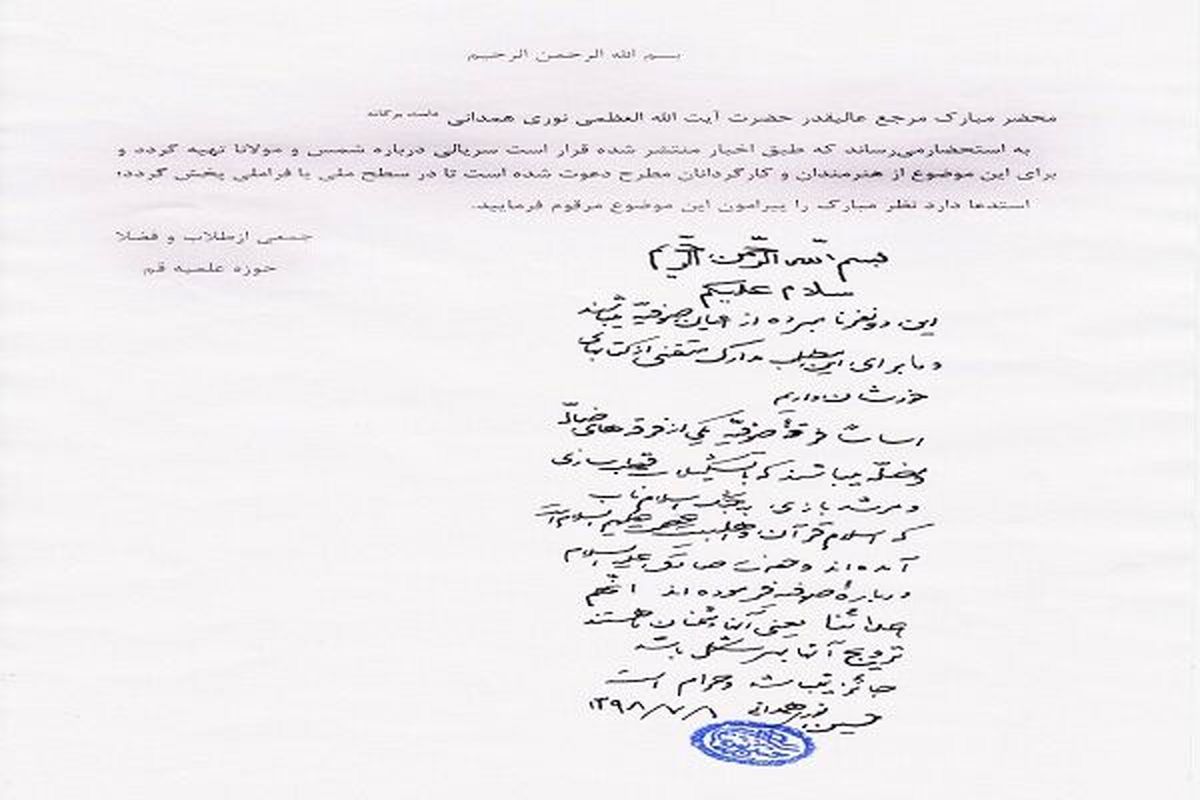 بسم الله الرحمن الرحیم
محضر مبارک مرجع عالیقدر حضرت آیت الله العظمی نوری همدانی دامت برکاته
به استحضار می‌رساند که طبق اخبار منتشر شده قرار است سریالی درباره شمس و مولانا تهیه گردد و
برای این موضوع از هنرمندان و کارگردانان مطرح دعوت شده است تا در سطح ملی یا فراملی پخش گردد؛
استدعا دارد نظر مبارک را پیرامون این موضوع مرقوم فرمایید.
جمعی از طلاب و فضلا
حوزه علمیه قم
بسم الله الرحمن الرحیم
سلام علیکم
این دو نفر نامبرده از صوفیّه میباشند
و ما برای این مطلب مدارک متقنی از کتابهای
خودشان داریم
اساساً فرقهٔ صوفیّه یکی از فرقه‌های ضالّه
و مضلّه میباشند که با تشکیلات قطب سازی
و مرشد بازی به جنگ اسلام ناب
که اسلام قرآن و اهلبیت عصمت علیهم السلام است
آمده‌اند و حضرت صادق علیه السلام
دربارهٔ صوفیه فرموده اند انّهم
اعدائنا یعنی آنان دشمنان ما هستند
ترویج آنها بهر شکلی باشد
جائز نمیباشد و حرام است
حسین نوری همدانی ۱۳۹۸/۷/۸